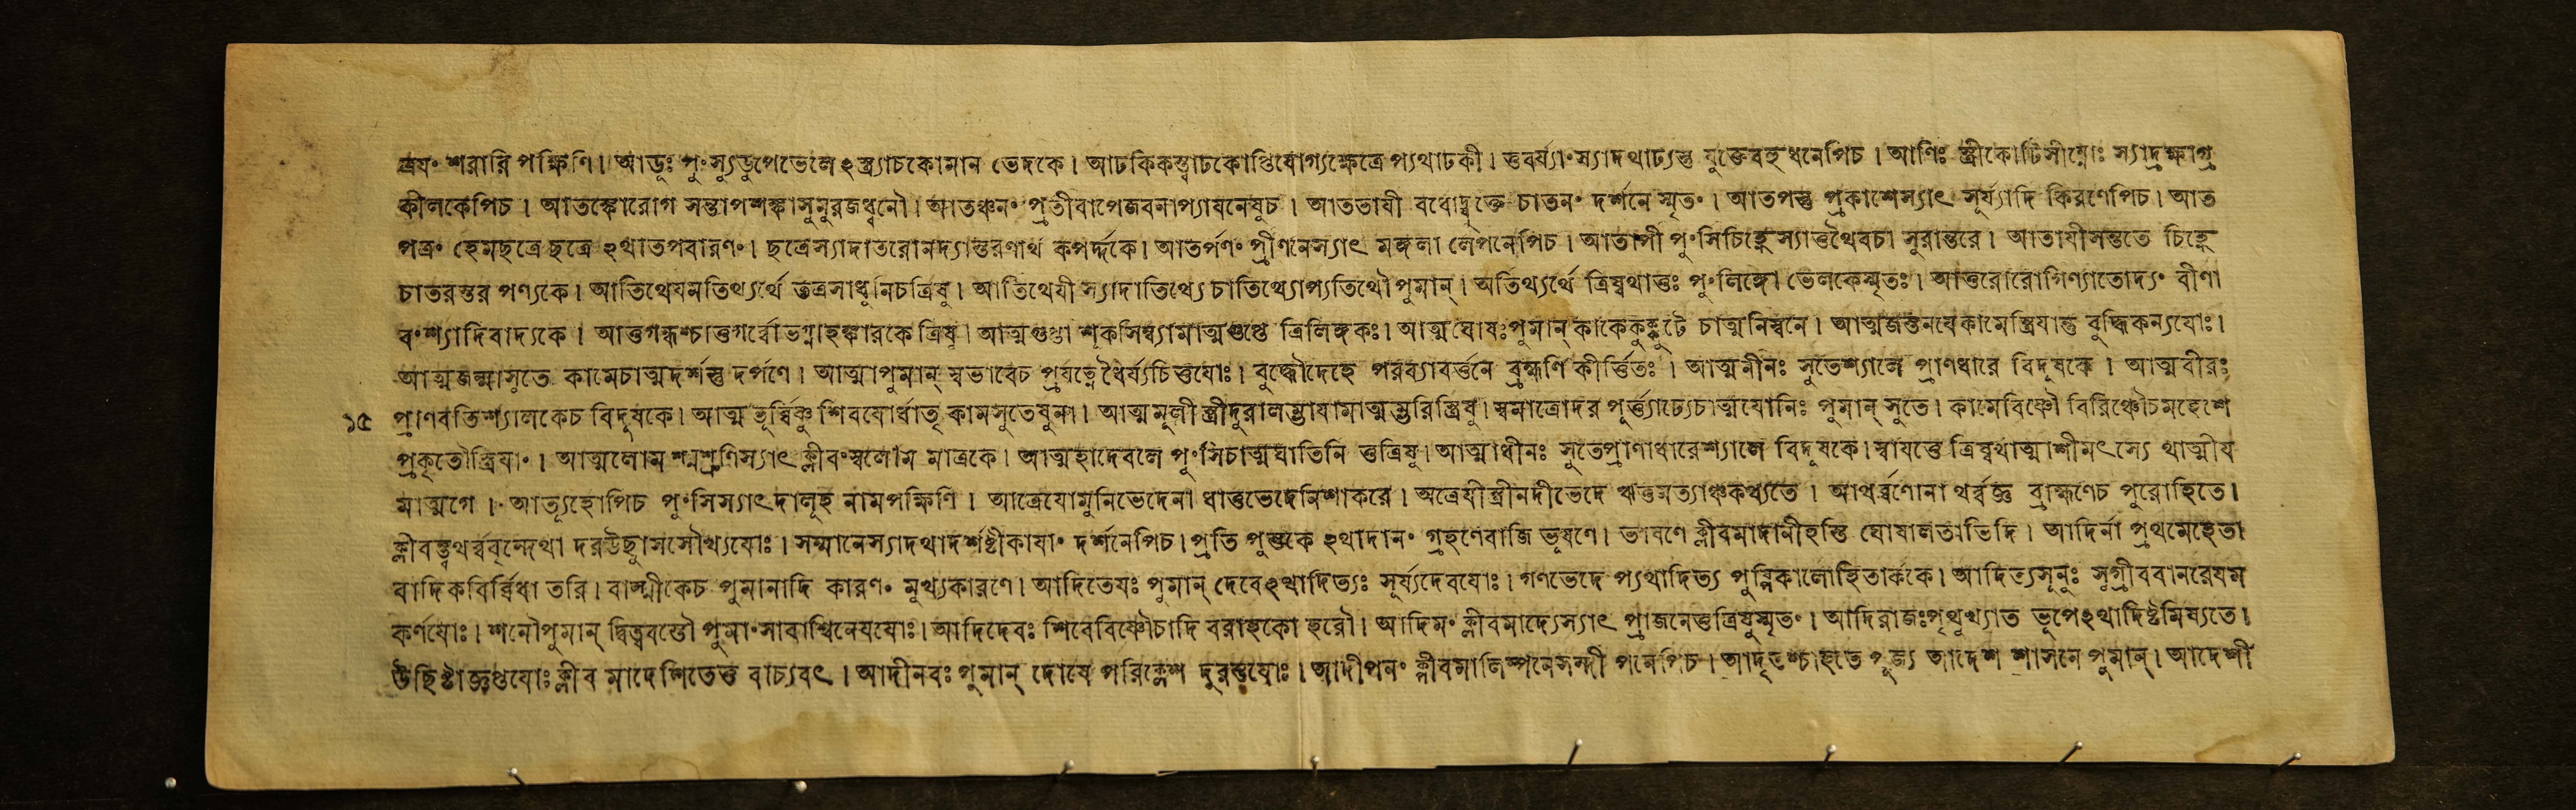 শরারি পক্ষিণি। আডূঃ পুংস্যুডুপেভেলে২স্ত্র্যাচকোমান ভেদকে। আঢকিকস্ত্বাঢকোণ্ডিযোগ্যক্ষেত্রে প্যথাঢকী। ত্তবর্য্যাংস্যাদথাঢ্যস্তু যুক্তেবহুধনেপিচ। আণিঃ স্ত্রীকোটিসীম্নোঃ স্যাদ্রক্ষাগ্র
কীলকেপিচ। আতঙ্কোরোগ সন্তাপশঙ্কাসুমুরজধ্বনৌ। আতঞ্চনং প্রতীবাপেজবনাপ্যাযনেষুচ। আততাযী বধোদ্যুক্তে চাতনং দর্শনে স্মৃতং। আতপস্তু প্রকাশেস্যাৎ সূর্য্যাদি কিরণেপিচ। আত
পত্রং হেমছত্রে ছত্রে ২থাতপবারণং। ছত্রেস্যাদাতরোনদ্যাস্তরণার্থ কপর্দ্দকে। আতর্পণং প্রীণনেস্যাৎ মঙ্গলা লেপনেপিচ। আতাপী পুংসিচিহ্লেস্যাত্তথৈবচা সুরান্তরে। আতাযীসন্ততে চিহ্লে
চাতরস্তর পণ্যকে। আতিথেযমতিথ্যর্থে তত্রসাধুনিচত্রিষু। আতিথেযী স্যাদাতিথ্যে চাতিথ্যোপ্যতিথৌ পুমান্। অতিথ্যর্থে ত্রিষ্বথাত্তঃ পুংলিঙ্গো ভেলকেস্মৃতঃ। আতুরোরোগিণ্যাতোদ্যং বীণা
বংশ্যাদিবাদ্যকে। আত্তগন্ধশ্চাত্তগর্ব্বোভগ্নাহঙ্কারকে ত্রিষু। আত্মগুপ্তা শূকসিম্ব্যামাত্মগুপ্তে ত্রিলিঙ্গকঃ। আত্ম ঘোষঃপুমান্ কাকেকুক্কুটে চাত্মনিস্বনে। আত্মজস্তনযেকামেস্ত্রিযান্তু বুদ্ধিকন্যযোঃ।
আত্মজন্মাসুতে কামেচাত্মদর্শস্তু দর্পণে। আত্মাপুমান্ স্বভাবেচ প্রযত্নে ধৈর্য্যচিত্তযোঃ। বুদ্ধৌদেহে পরব্যাবর্ত্তনে ব্রহ্মণি কীর্ত্তিতঃ। আত্মনীনঃ সুতেশ্যালে প্রাণধারে বিদূষকে। আত্মবীরঃ
১৫ প্রাণবতিশ্যালকেচ বিদূষকে। আত্ম ভূর্ব্বিষ্ণু শিবযোর্ধাতৃ কামসুতেষুনা। আত্মমূলী স্ত্রীদুরালম্ভাযামাত্মম্ভরিস্ত্রিষু। স্বমাত্রোদর পূর্ত্ত্যাঢ্যেচাত্মযোনিঃ পুমান্ সুতে। কামেবিষ্ণৌ বিরিঞ্চৌচমহেশে
প্রকৃতৌস্ত্রিযাং। আত্মলোম শ্মশ্রুণিস্যাৎ ক্লীবংস্বলোম মাত্রকে। আত্মহাদেবলে পুংসিচাত্মঘাতিনি তুত্রিষু। আত্মাধীনঃ সুতেপ্রাণাধারেশ্যালে বিদূষকে। স্বাযত্তে ত্রিষ্বথাত্মাশীমৎস্যে থাত্মীয
মাত্মগে। আত্যূহোপিচ পুংসিস্যাৎদাত্যূহ নামপক্ষিণি। আত্রেযোমুনিভেদেনা ধাতুভেদেনিশাকরে। অত্রেযীস্ত্রীনদীভেদে ঋতুমত্যাঞ্চকথ্যতে। আথর্ব্বণোনা থর্ব্বজ্ঞ ব্রাহ্মণেচ পুরোহিতে।
ক্লীবন্ত্বথর্ব্ববৃন্দেথা দরউচ্ছ্বাসসৌখ্যযোঃ। সম্মানেস্যাদথাদর্শষ্টীকাযাং দর্শনেপিচ। প্রতি পুস্তকে ২থাদানং গ্রহণেবাজি ভূষণে। ভাষণে ক্লীবমাদানীহস্তি ঘোষালতাভিদি। আদির্না প্রথমেহেতা
বাদিকবির্ব্বিধা তরি। বাল্মীকেচ পুমানাদি কারণং মুখ্যকারণে। আদিতেযঃ পুমান্ দেবে২থাদিত্যঃ সূর্য্যদেবযোঃ। গণভেদে প্যথাদিত্য পুষ্পিকালোহিতার্ককে। আদিত্যসূনুঃ সুগ্রীববানরেযম
কর্ণযোঃ। শনৌপুমান্ দ্বিত্ববত্তৌ পুমাংসাবাশ্বিনেযযোঃ। আদিদেবঃ শিবেবিষ্ণৌচাদি বরাহকো হরৌ। আদিমং ক্লীবমাদ্যেস্যাৎ প্রাজনেত্তত্রিষুস্মৃতং। আদিরাজঃপৃথুখ্যাত ভূপে২থাদিষ্টমিষ্যতে।
উচ্ছিষ্টাজ্ঞপ্তযোঃক্লীব মাদেশিতেতু বাচ্যবৎ। আদীনবঃ পুমান্ দোষে পরিক্লেশ দুরন্তযোঃ। আদীপনং ক্লীবমালিম্পনেসন্দী পনেপিচ। আদৃতশ্চাহতে পূজ্য আদেশ শাসনে পুমান্। আদেশী